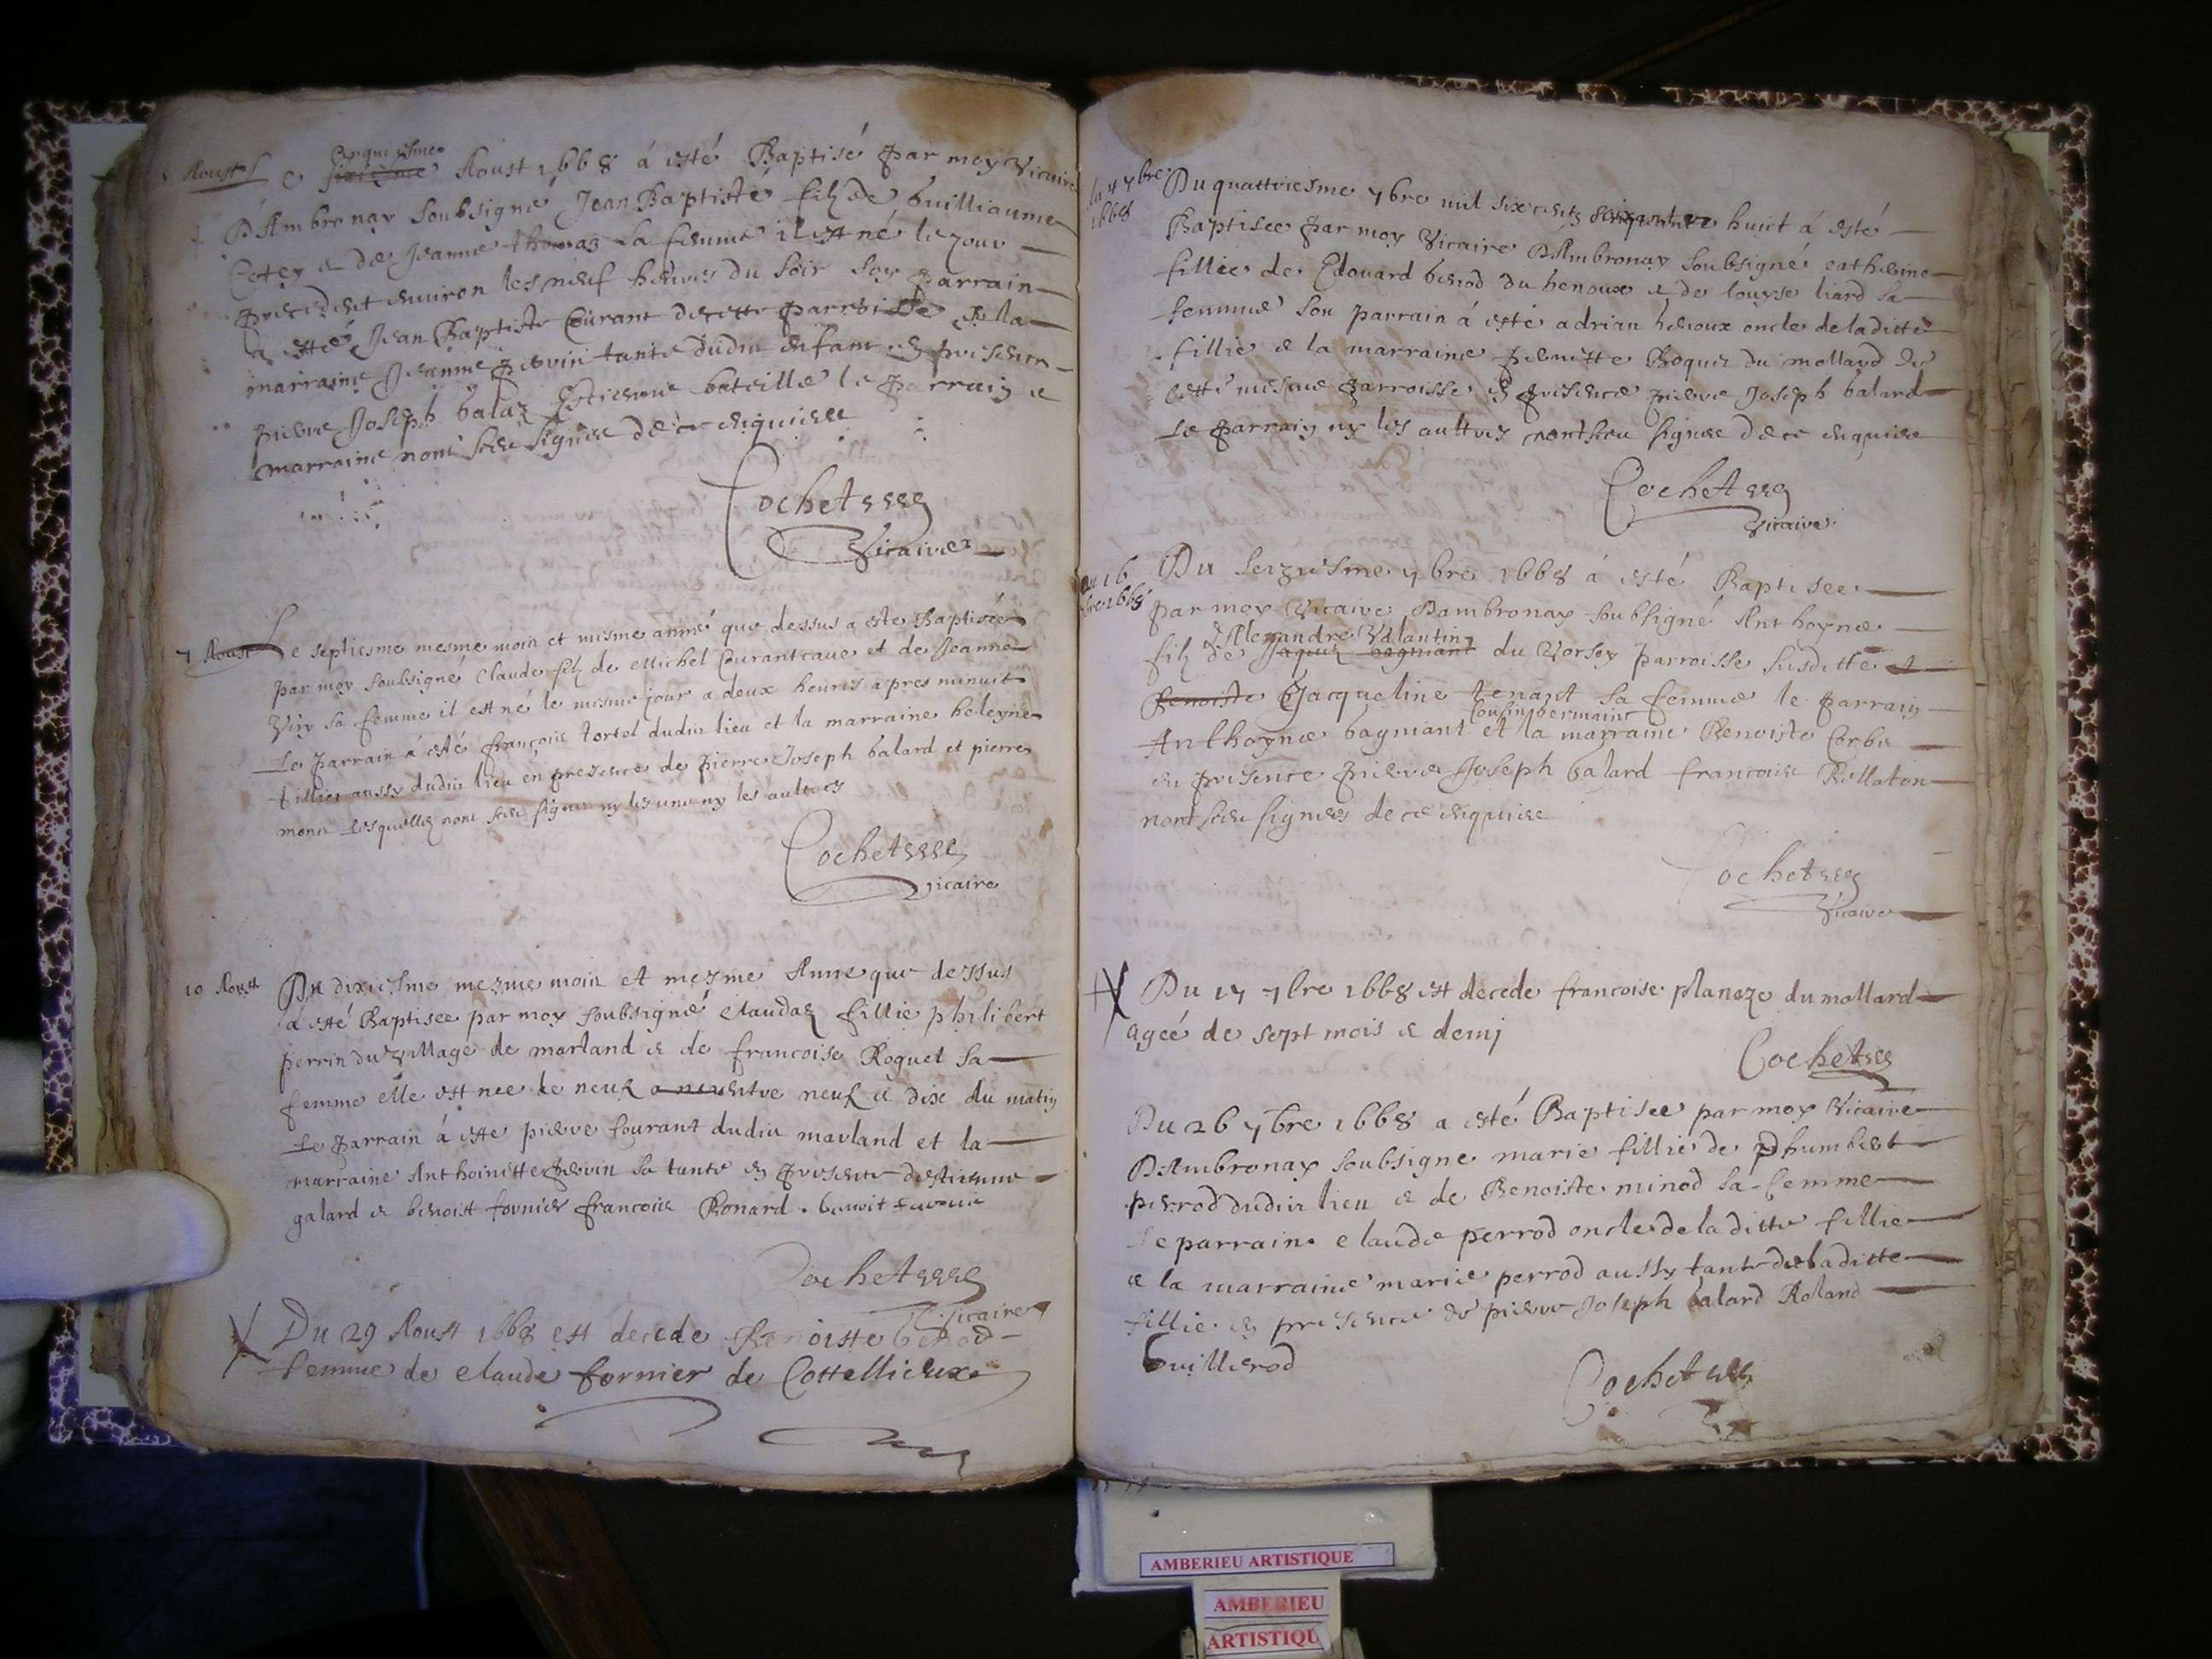 Aoust
Le cinquiesme Aoust 1668 á esté Baptisé par moy Vicaire
D'Ambronay soubsigné Jean Baptiste filz de Guilliaume
Cotey & de Jeanne thomaz sa femme il est né le jour
precedent environ les neuf heures du soir soy parrain
a esté Jean Baptiste Courant de cette parroisse & la
marraine Jeanne pervin tante dudict enfant en presence
pierre Joseph balaz Estienne bateille le parrain &
marraine nont sceu signer de ce enquis
Cochet
Vicaire
7 Aoust
Le septiesme mesme mois et mesme anné que dessus a este Baptisée
par moy soubsigné Claude filz de Michel Courantcave et de Jeanne
sa femme il est né le mesme jour a deux heures apres minuit
Le parrain á esté françois tortel dudict lieu et la marraine heleyne
tillier aussy dudict lieu en presence de pierre Joseph balard et pierre
lesquelles nont sceu signer ny les uns ny les aultres
Cochet
vicaire
10 Aoust
Du dixiesme mesme mois et mesme Anne que dessus
á esté Baptisee par moy soubsigné Claudaz fillie philibert
perrin du Village de marland & de francoise Roguet sa
femme elle est nee le neuf entre neuf & dix du matin
Le parrain á este pierre Courant dudict marland et la
marraine Anthoinette pervin sa tante en presence destienne
galard & benoist fornier francois Bonard . benoit
Cochet
Vicaire
Du 29 Aoust 1668 est decede Benoiste benod
femme de claude fornier de Cottellieux
la 4 7bre
1668
Du quattriesme 7bre mil six cents soixante huict á esté
Baptisee par moy Vicaire D'Ambronay soubsigné catherine
fillie de Edouard benod du henoux & de louyse liard sa
femme son parrain á esté adrian heroux oncle de laditte
fillie & la marraine pernette Boquiz du mollard de
cette mesme parroisse en presence pierre Joseph balard
Le parrain ny les aultres nont sceu signer de ce enquis
Cochet
Vicaire
Du 16
7bre 1668
Du seiziesme 7bre 1668 á esté Baptisee
par moy Vicaire Dambronay soubsigné Anthoyne
filz de d'Alexandre Valantin Jaques bagniant du Vorsey parroisse susditte &
Benoiste Jacqueline tenant sa femme le parrain
Anthoyne bagniant cousin germain et la marraine Benoiste Corbe
en presence pierre Joseph balard francoise Rellaton
nont sceu signer de ce enquis
Cochet
Vicaire
Du 17 7bre 1668 est decede francoise planeze du mollard
agée de sept mois & demj
Cochet
Du 26 7bre 1668 a esté Baptisee par moy Vicaire
D'Ambronay soubsigne marie fillie de dhumbert
perrod dudict lieu & de Benoiste minod sa femme
Le parrain claude perrod oncle de la ditte fillie
& la marraine marie perrod aussy tante de laditte
fillie en presence de pierre Joseph balard Roland
Guillierod
Cochet
AMBERIEU ARTISTIQUE
AMBERIEU
ARTISTIQU